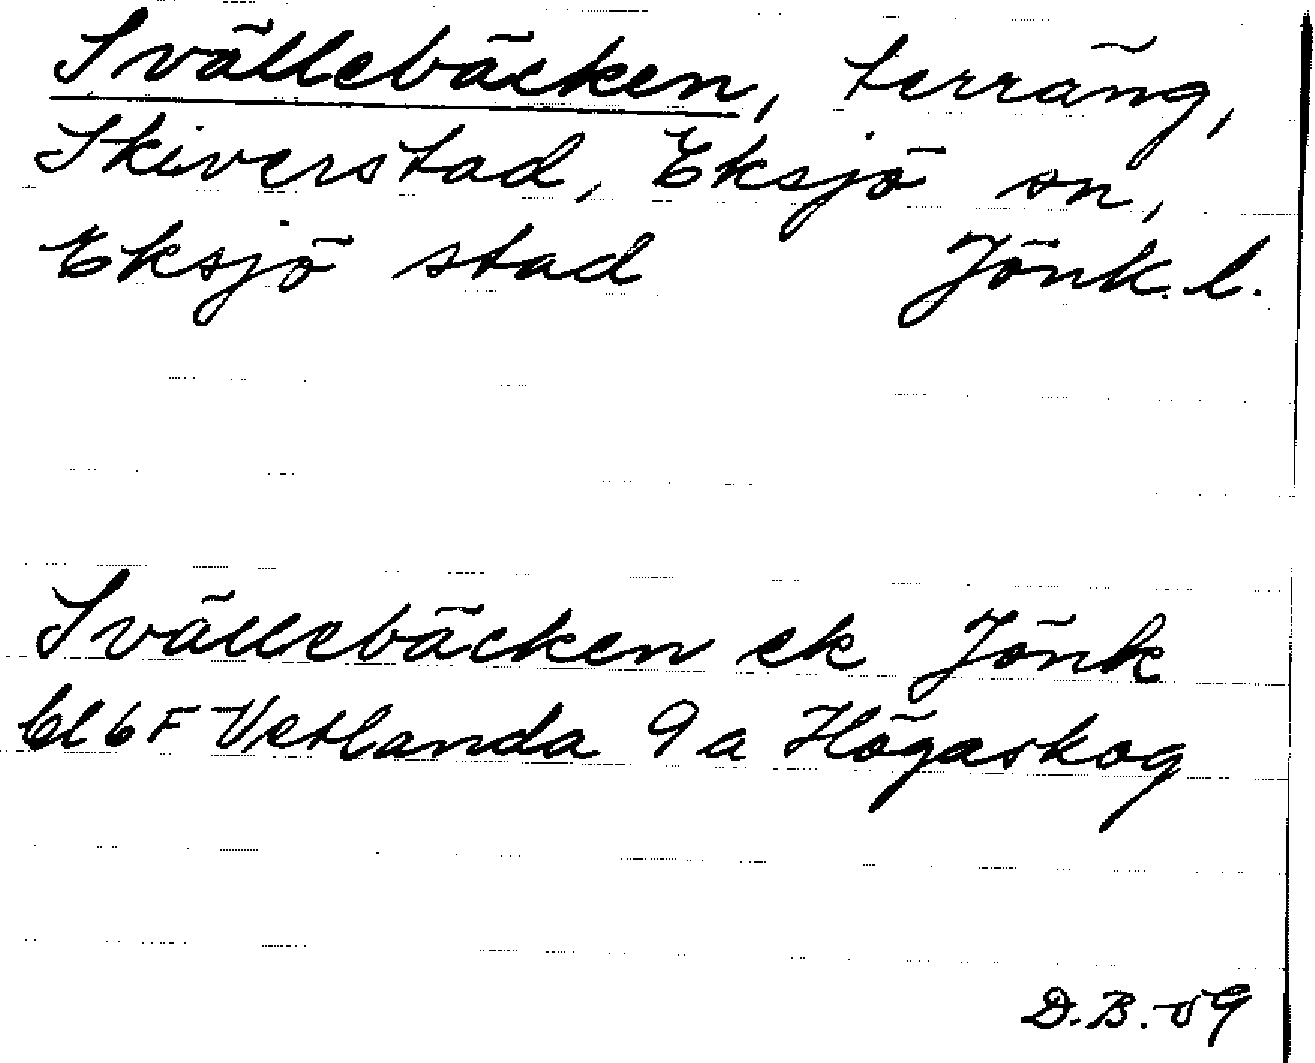 Svällebäcken, terräng,
Skiverstad, Eksjö sn,
Eksjö stad Jönk. l.
Svällebäcken ek Jönk
bl 6F Vetlanda 9a Högaskog
D.B.-59